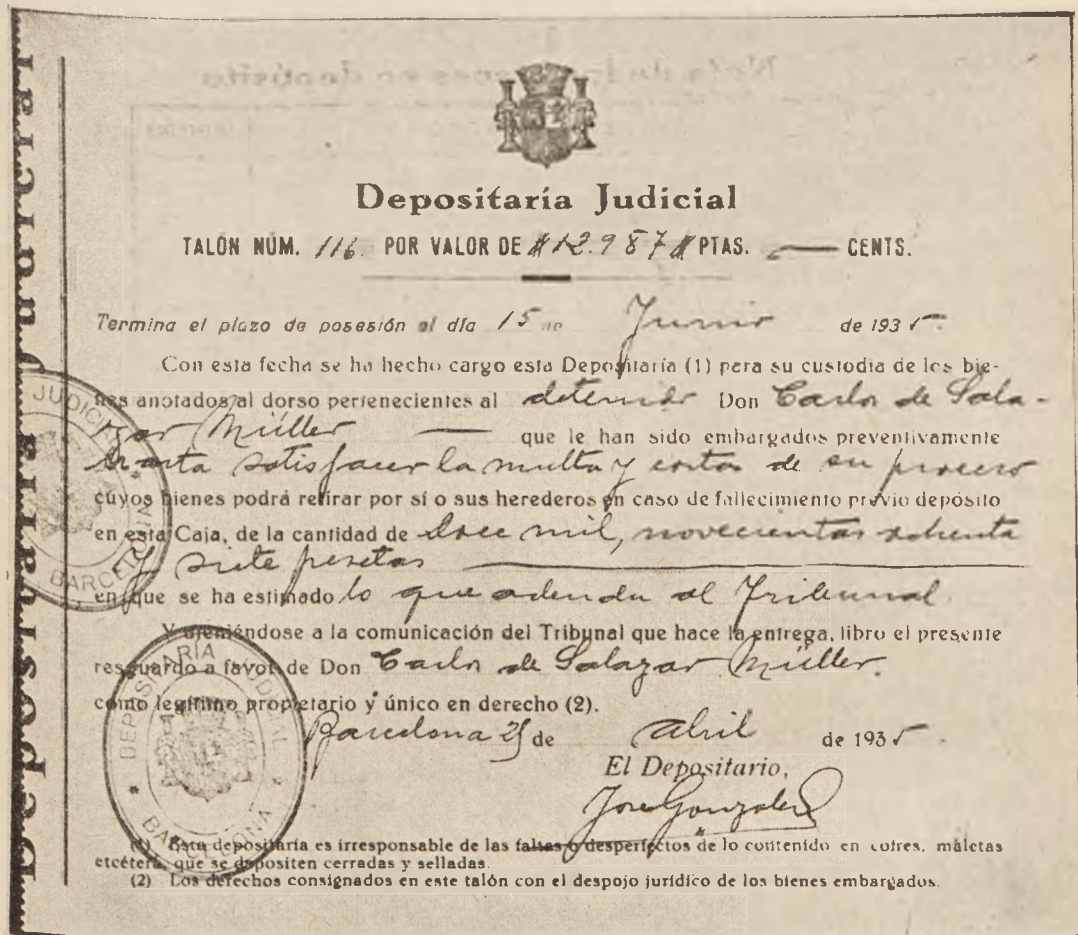 Depositaría Judicial
Depositaría Judicial
TALÓN NÚM. 116 POR VALOR DE #12.987# PTAS. — CENTS.
Termina el plazo de posesión al día 15 de Junio de 1935.
Con esta fecha se ha hecho cargo esta Depositaría (1) para su custodia de los bie-
nes anotados al dorso pertenecientes al detenido Don Carlos de Sala-
zar Müller — que le han sido embargados preventivamente
hasta satisfacer la multa y costas de su proceso
cuyos bienes podrá retirar por sí o sus herederos en caso de fallecimiento previo depósito
en esta Caja, de la cantidad de doce mil, novecientas ochenta
y siete pesetas —
en que se ha estimado lo que adeuda al Tribunal
Y ateniéndose a la comunicación del Tribunal que hace la entrega, libro el presente
resguardo a favor de Don Carlos de Salazar Müller.
como legítimo propietario y único en derecho (2).
Barcelona 25 de abril de 1935.
El Depositario,
José González
(1) Esta depositaría es irresponsable de las faltas o desperfectos de lo contenido en cofres, maletas
etcétera, que se depositen cerradas y selladas.
(2) Los derechos consignados en este talón con el despojo jurídico de los bienes embargados.
JUDICIAL
BARCELONA
DEPOSITARÍA JUDICIAL
* BARCELONA *